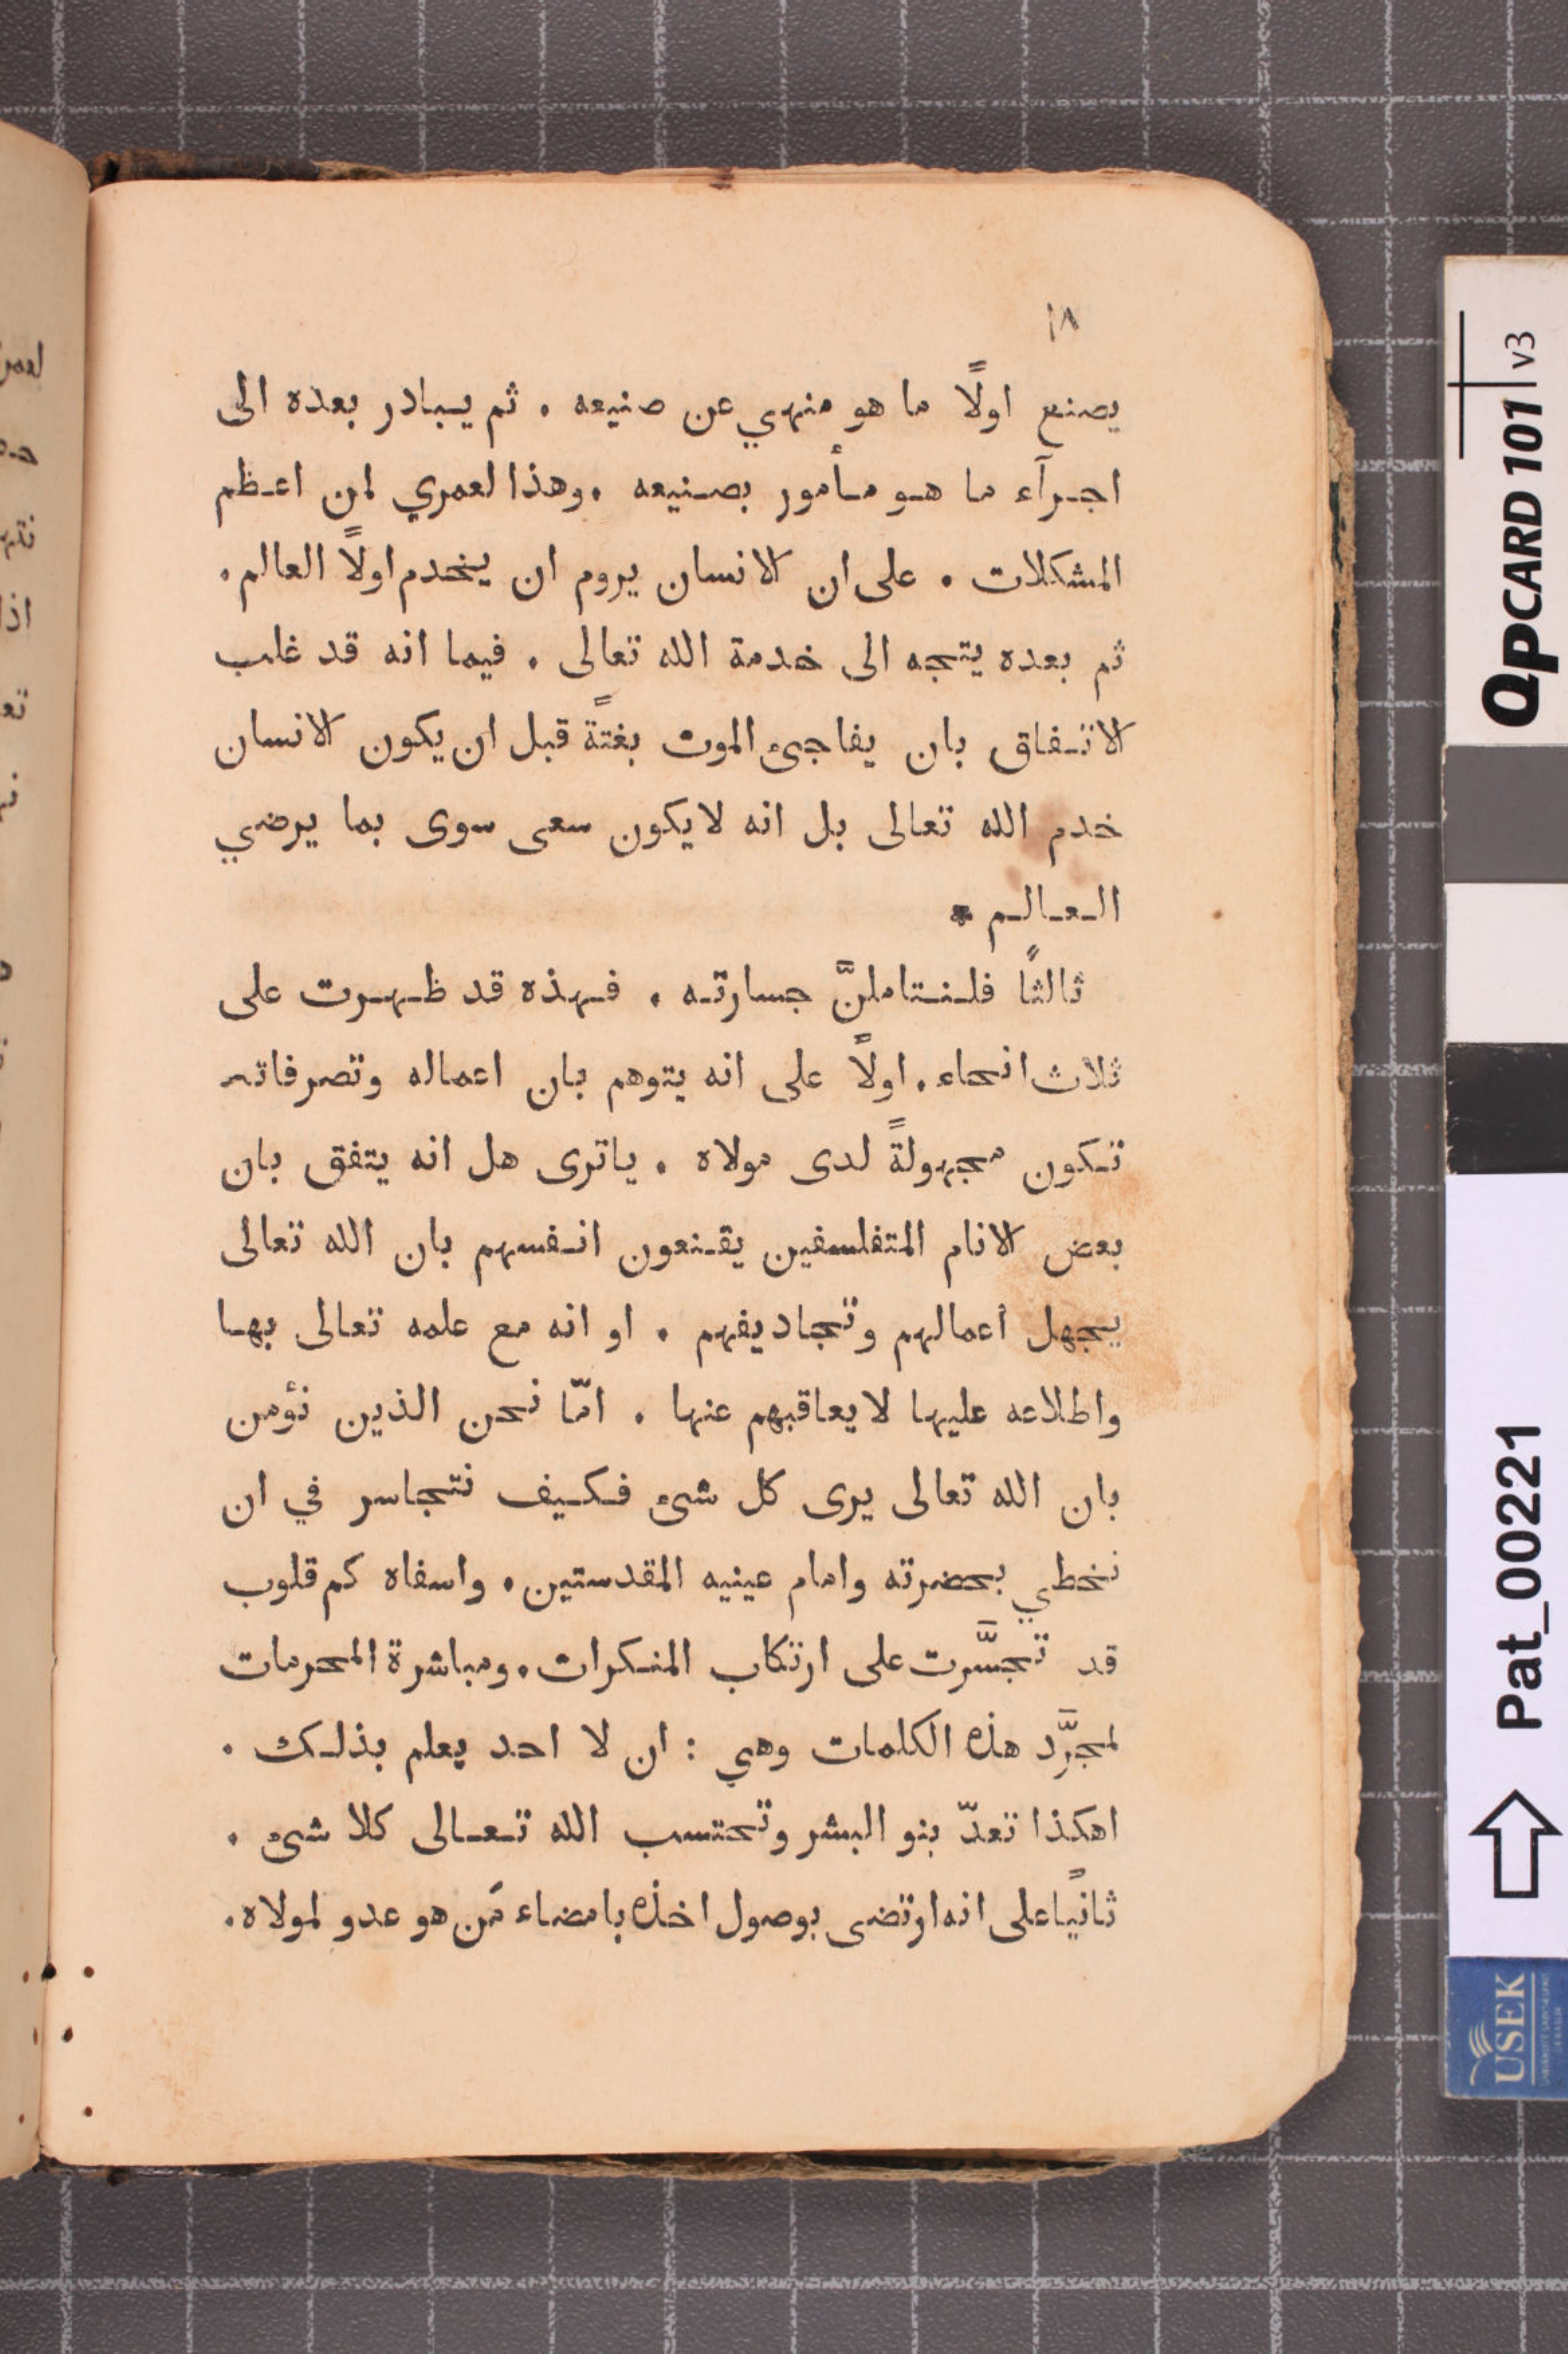 ١٨
يصنع اولًا ما هو منهي عن صنيعه . ثم يبادر بعده الى
اجرآء ما هو مأمور بصنيعه . وهذا لعمري لمن اعظم
المشكلات . على ان الانسان يروم ان يخدم اولًا العالم .
ثم بعده يتجه الى خدمة الله تعالى . فيما انه قد غلب
الاتفاق بان يفاجئ الموت بغتةً قبل ان يكون الانسان
خدم الله تعالى بل انه لايكون سعى سوى بما يرضي
العالم *
ثالثًا فلنتاملنَّ جسارته . فهذه قد ظهرت على
ثلاث انحاء . اولًا على انه يتوهم بان اعماله وتصرفاته
تكون مجهولةً لدى مولاه . ياترى هل انه يتفق بان
بعض الانام المتفلسفين يقنعون انفسهم بان الله تعالى
يجهل أعمالهم وتجاديفهم . او انه مع علمه تعالى بها
واطلاعه عليها لايعاقبهم عنها . امّا نحن الذين نؤمن
بان الله تعالى يرى كل شئ فكيف نتجاسر في ان
نخطي بحضرته وامام عينيه المقدستين . واسفاه كم قلوب
قد تجسَّرت على ارتكاب المنكرات . ومباشرة المحرمات
لمجرَّد هذه الكلمات وهي : ان لا احد يعلم بذلك .
اهكذا تعدّ بنو البشر وتحتسب الله تعالى كلا شئ .
ثانيًا على انه ارتضى بوصول اخذه بامضاء مَن هو عدو لمولاه .
QPCARD 101 v3
Pat_00221
USEK